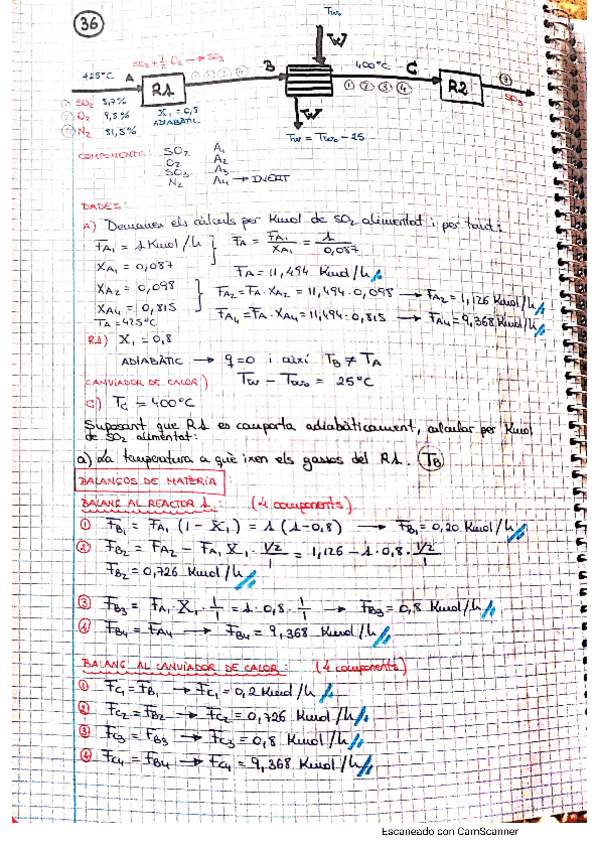 36
Two
W
SO2 + 1/2 O2 → SO3
425°C A
B
400°C C
R1
① ② ③ ④
① ② ③ ④
R2
③
SO3
① SO2 8,7%
② O2 9,8%
④ N2 81,5%
X1 = 0,8
ADIABÀTIC
W
Tw = Two - 25
COMPONENTS: SO2 A1
O2 A2
SO3 A3
N2 A4 → INERT
DADES:
A) Demanen els càlculs per Kmol de SO2 alimentat i per tant:
FA1 = 1 Kmol/h } FA = FA1/XA1 = 1/0,087
XA1 = 0,087
FA = 11,494 Kmol/h
XA2 = 0,098 } FA2 = FA·XA2 = 11,494·0,098 → FA2 = 1,126 Kmol/h
XA4 = 0,815 FA4 = FA·XA4 = 11,494·0,815 → FA4 = 9,368 Kmol/h
TA = 425°C
R1) X1 = 0,8
ADIABÀTIC → q=0 i així TB ≠ TA
CANVIADOR DE CALOR) Tw - Two = 25°C
C) TC = 400°C
Suposant que R1 es comporta adiabàticament, calcular per Kmol
de SO2 alimentat:
a) La temperatura a què ixen els gasos del R1. TB
BALANÇOS DE MATÈRIA
BALANÇ AL REACTOR 1: (4 components)
① FB1 = FA1 (1 - X1) = 1 (1-0,8) → FB1 = 0,20 Kmol/h
② FB2 = FA2 - FA1 X1 · 1/2/1 = 1,126 - 1·0,8· 1/2/1
FB2 = 0,726 Kmol/h
③ FB3 = FA1 X1 · 1/1 = 1·0,8· 1/1 → FB3 = 0,8 Kmol/h
④ FB4 = FA4 → FB4 = 9,368 Kmol/h
BALANÇ AL CANVIADOR DE CALOR: (4 components)
① FC1 = FB1 → FC1 = 0,2 Kmol/h
② FC2 = FB2 → FC2 = 0,726 Kmol/h
③ FC3 = FB3 → FC3 = 0,8 Kmol/h
④ FC4 = FB4 → FC4 = 9,368 Kmol/h
Escaneado con CamScanner